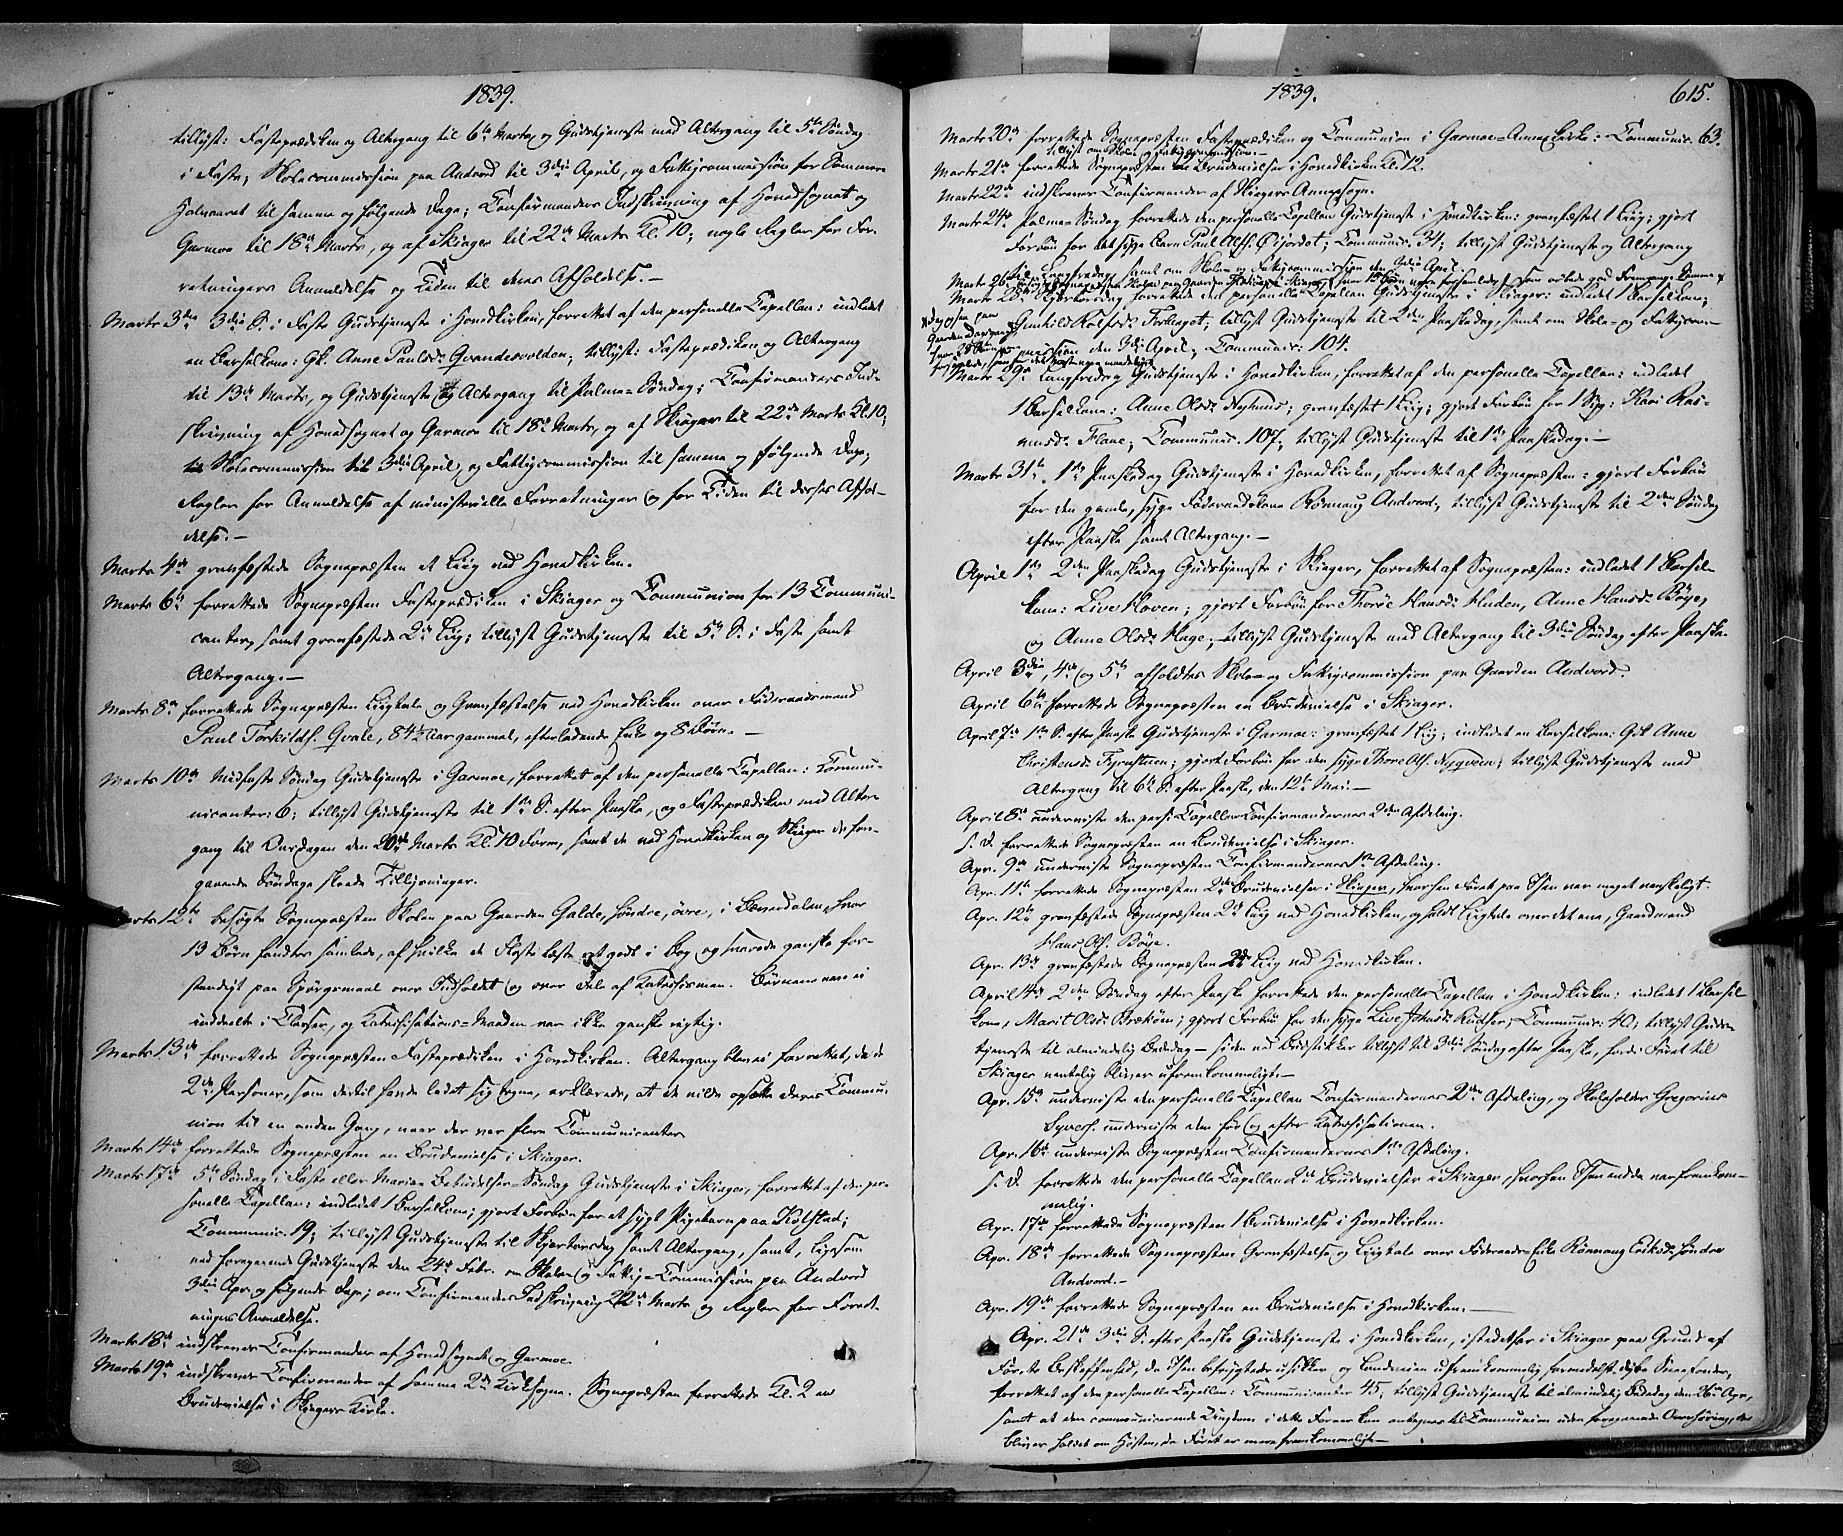 1839.
tillyst: Fasteprædiken og Altergang til 6te Marts og Gudstjeneste med Altergang til 5te Søndag
i Faste; Skolecommission paa Andvord til 3die April, og Fattigcommission for Sommer-
Halvaaret til samme og følgende Dage; Confirmanders Indskrivning af Hovedsognet og
Garmoe til 18de Marts, og af Skiager til 22de Marts Kl. 10; nogle Regler for For-
retningers Anmeldelse og Tiden til deres Afholdelse.—
Marts 3die 3die S. i Faste Gudstjeneste i Hovedkirken, forrettet af den personelle Capellan: indledet
en Barselkone: Gk. Anne Paulsdr Qvandesvolden; tillyst: Fasteprædiken og Altergang
til 13de Marts, og Gudstjeneste og Altergang til Palme-Søndag; Confirmanders Ind-
skrivning af Hovedsognet og Garmoe til 18de Marts, og af Skiager til 22de Marts Kl. 10;
til Skolecommission til 3die April, og Fattigcommission til samme og følgende Dage;
Regler for Anmeldelse af ministerielle Forretninger og for Tiden til deres Afhol-
delse.—
Marts 4de græsfæstede Sognepræsten et Liig ved Hovedkirken.
Marts 6te forrettede Sognepræsten Fasteprædiken i Skiager og Communion for 13 Communi-
canter, samt græsfæstede 2de Liig; tillyst Gudstjeneste til 5te S. i Faste samt
Altergang.—
Marts 8de forrettede Sognepræsten Liigtale og Græsfæstelse ved Hovedkirken over Føderaadsmand
Paul Torkildss. Qvale, 84½ Aar gammel, efterladende Enke og 8 Børn.—
Marts 10de Midfaste Søndag Gudstjeneste i Garmoe, forrettet af den personelle Capellan: Commu-
nicanter: 6; tillyst Gudstjeneste til 1ste S. efter Paaske, og Fasteprædiken med Alter-
gang til Onsdagen den 20de Marts Kl. 10 Form, samt de ved Hovedkirken og Skiager de fore-
gaaende Søndage skeede Tillysninger.
Marts 12te besøgte Sognepræsten Skolen paa Gaarden Galde, søndre, øvre, i Bæverdalen, hvor
13 Børn fandtes samlede, af hvilke de Fleste læste ret godt i Bog og svarede ganske for-
standigt paa Spørgsmaal over Indholdet og over Dele af Katechismen. Børnene vare ei
inddeelte i Classer, og Katechisations-Maaden var ikke ganske rigtig.
Marts 13de forrettede Sognepræsten Fasteprædiken i Hovedkirken. Altergang blev ei forrettet, da de
2de Personer, som dertil havde ladet sig tegne, erklærede, at de vilde opsætte deres Commu-
nion til en anden Gang, naar der var flere Communicanter.
Marts 14de forrettede Sognepræsten en Brudevielse i Skiager.
Marts 17de 5te Søndag i Faste eller Mariæ Bebudelses-Søndag Gudstjeneste i Skiager, forrettet af den per-
sonelle Capellan: indledet 1 Barselkone; gjort Forbøn for et sygt Pigebarn paa Kolstad;
Communic. 19; tillyst Gudstjeneste til Skjærtorsdag samt Altergang, samt, ligesom
ved foregaaende Gudstjeneste den 24de Febr. om Skole- og Fattig-Commission paa Andvord
3die Apr. og følgende Dage; om Confirmanders Indskrivning 22de Marts og Regler for Forret-
ningers Anmeldelse.
Marts 18de indskreves Confirmander af Hovedsognet og Garmoe.
Marts 19de indskreves Confirmander af samme 2de Kirkesogne. Sognepræsten forrettede Kl. 2 en
Brudevielse i Skiagers Kirke.
1839. 615.
Marts 20de forrettede Sognepræsten Fasteprædiken og Communion i Garmoe-Annexkirke: Communic. 63.
tillyst om Skole- og Fattigcommission.
Marts 21de forrettede Sognepræsten en Brudevielse i Hovedkirken Kl. 12.
Marts 22de indskreves Confirmander af Skiagers Annexsogn.
Marts 24de Palme-Søndag forrettede den personelle Capellan Gudstjeneste i Hovedkirken: græsfæstet 1 Liig; gjort
Forbøn for det syge Barn Paul Olss. Øijordet; Communic. 34; tillyst Gudstjeneste og Altergang
til Langfredag samt om Skole- og Fattigcommission den 3die April.
Marts 26de
Marts 28de Skjærtorsdag forrettede den personelle Capellan Gudstjeneste i Skiager: indledet 1 Barselkone;
Gunhild Rolfsdr Forbergot; tillyst Gudstjeneste til 2den Paaskedag, samt om Skole- og Fattigcom-
mission den 3die April; Communic. 104.
Marts 29de Langfredag Gudstjeneste i Hovedkirken, forrettet af den personelle Capellan: indledet
1 Barselkone: Anne Olsdr Nylund; græsfæstet 1 Liig; gjort Forbøn for 1 Syg: Kari Ras-
musdr Flaae; Communic. 107; tillyst Gudstjeneste til 1ste Paaskedag.—
Marts 31te 1ste Paaskedag Gudstjeneste i Hovedkirken, forrettet af Sognepræsten: gjort Forbøn
for den gamle, syge Føderaadskone Rønnaug Andvord, tillyst Gudstjeneste til 2den Søndag
efter Paaske samt Altergang.—
April 1ste 2den Paaskedag Gudstjeneste i Skiager, forrettet af Sognepræsten: indledet 1 Barsel-
kone: Live Hoven; gjort Forbøn for Thorøe Hansdr Huden, Anne Hansdr Böye,
og Anne Olsdr Hage; tillyst Gudstjeneste med Altergang til 3die Søndag efter Paaske.
April 3die, 4de og 5te afholdtes Skole- og Fattigcommission paa Gaarden Andvord.
April 6te forrettede Sognepræsten en Brudevielse i Skiager.
April 7de 1ste S. efter Paaske Gudstjeneste i Garmoe: græsfæstet 1 Liig; indledet en Barselkone: Gk. Anne
Christensdr Tyrnsteen; gjort Forbøn for den syge Thore Olss. Nyqveen; tillyst Gudstjeneste med
Altergang til 6te S. efter Paaske, den 12te Mai.—
April 8de underviste den pers. Capellan Confirmandernes 2den Afdeling.
s. D. forrettede Sognepræsten en Brudevielse i Skiager.
Apr. 9de underviste Sognepræsten Confirmandernes 1ste Afdeling.
Apr. 11te forrettede Sognepræsten 2de Brudevielser i Skiager, hvorhen Føret paa Isen var meget vanskeligt.
Apr. 12te græsfæstede Sognepræsten 2de Liig ved Hovedkirken, og holdt Liigtale over det ene, Gaardmand
Hans Olss. Böye.
Apr. 13de græsfæstede Sognepræsten 2de Liig ved Hovedkirken.
April 14de 2den Søndag efter Paaske forrettede den personelle Capellan i Hovedkirken: indledet 1 Barsel-
kone, Marit Olsdr Brækøm; gjort Forbøn for den syge Live Johsdr Rudser; Communic: 40; tillyst Guds-
tjeneste til almindelig Bededag — siden ved Budstikker tillyst til 3die Søndag efter Paaske, fordi Føret til
Skiager ventelig bliver ufremkommeligt.—
Apr. 15de underviste den personelle Capellan Confirmandernes 2den Afdeling, og Skoleholder Gregorius
Syvers. underviste dem før og efter Katechisationen.
Apr. 16de underviste Sognepræsten Confirmandernes 1ste Afdeling.
s. D. forrettede den personelle Capellan 2de Brudevielser i Skiager, hvorhen Isen endda var fremkom-
melig.
Apr. 17de forrettede Sognepræsten 1 Brudevielse i Hovedkirken.
Apr. 18de forrettede Sognepræsten Græsfæstelse og Liigtale over Føderaads-Enke Rönnaug Eriksdr søndre
Andvord.—
Apr. 19de forrettede Sognepræsten en Brudevielse i Hovedkirken.—
Apr. 21de 3die S. efter Paaske Gudstjeneste i Hovedkirken, istedetfor i Skiager paa Grund af
Førets Beskaffenhed, da Isen befrygtedes usikker og Landeveien ufremkommelig formedelst dybe Sneefonder,
forrettet af den personelle Capellan: Communicanter 45; tillyst Gudstjeneste til almindelig Bededag den 26de Apr.,
samt at den communicerende Ungdom i dette Foraar kan antages til Communion uden foregaaende Overhøring, der
bliver holdet om Høsten, da Føret er mere fremkommeligt.—